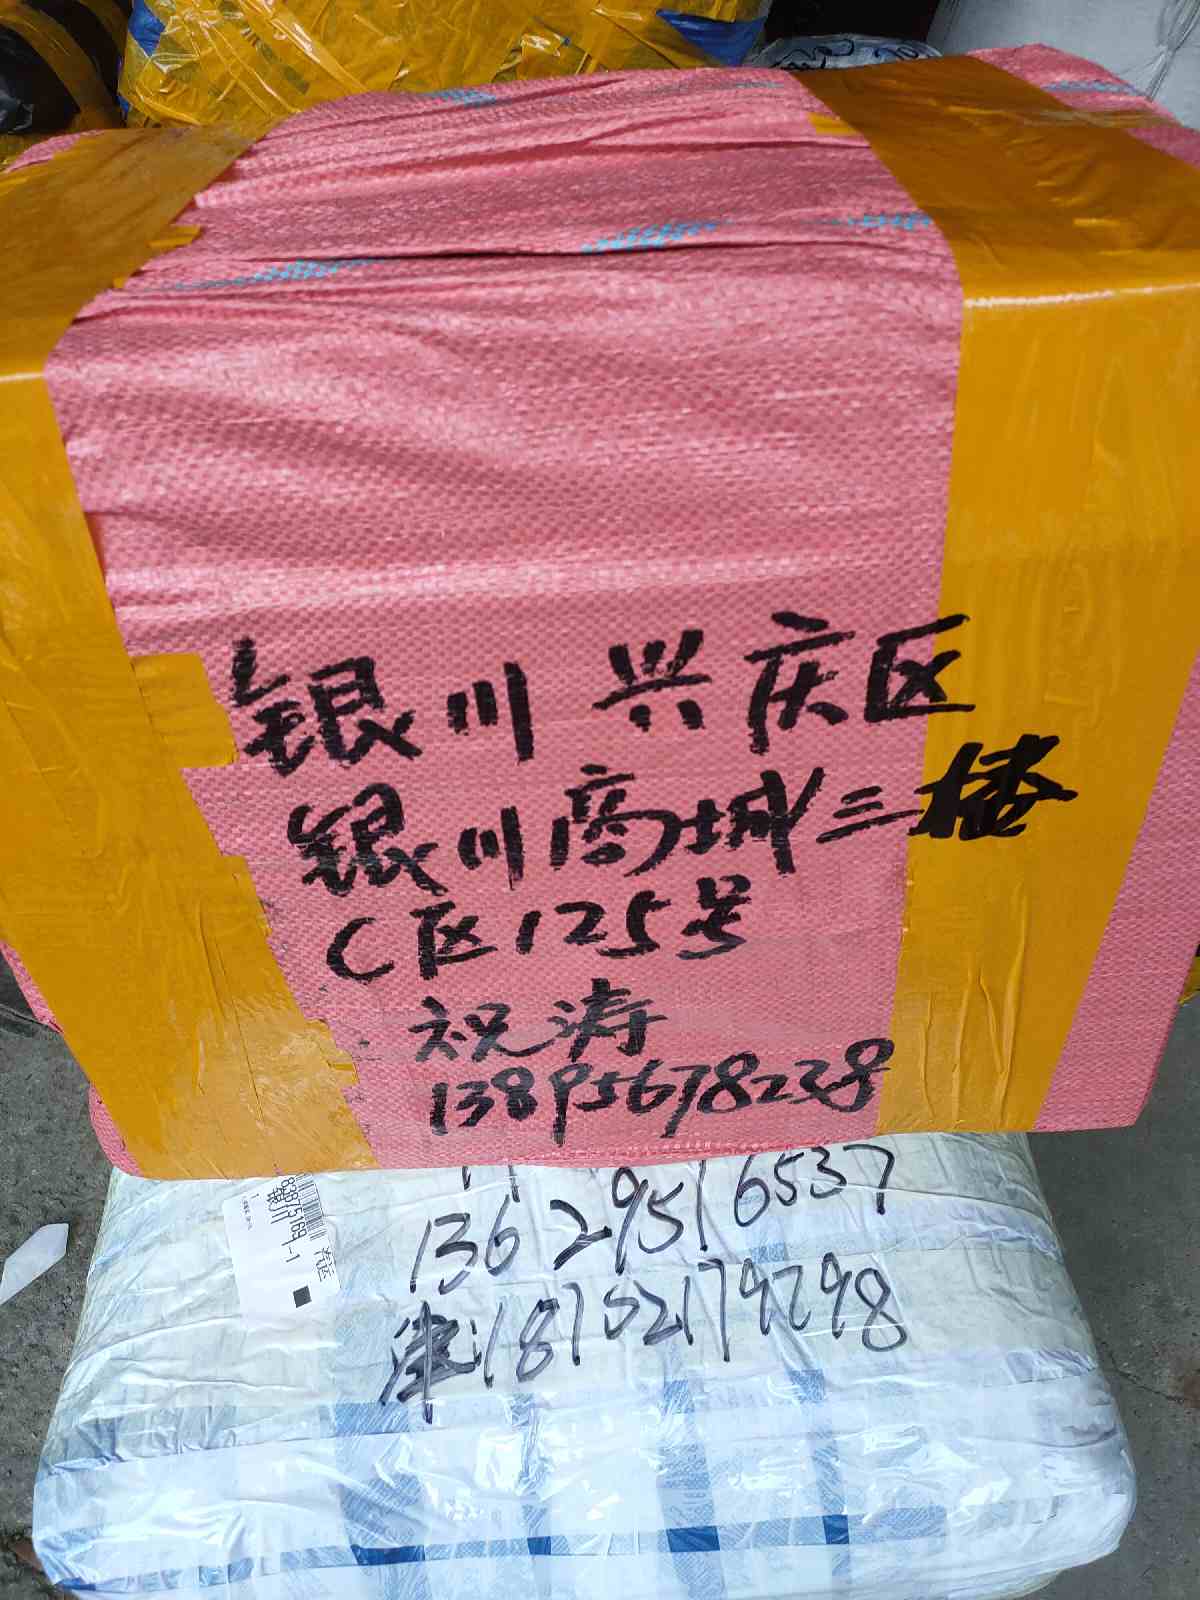 银川 兴庆区
银川商城三楼
C区125号
祝涛
13895678238
13629516537
18152179298
银川
汽运